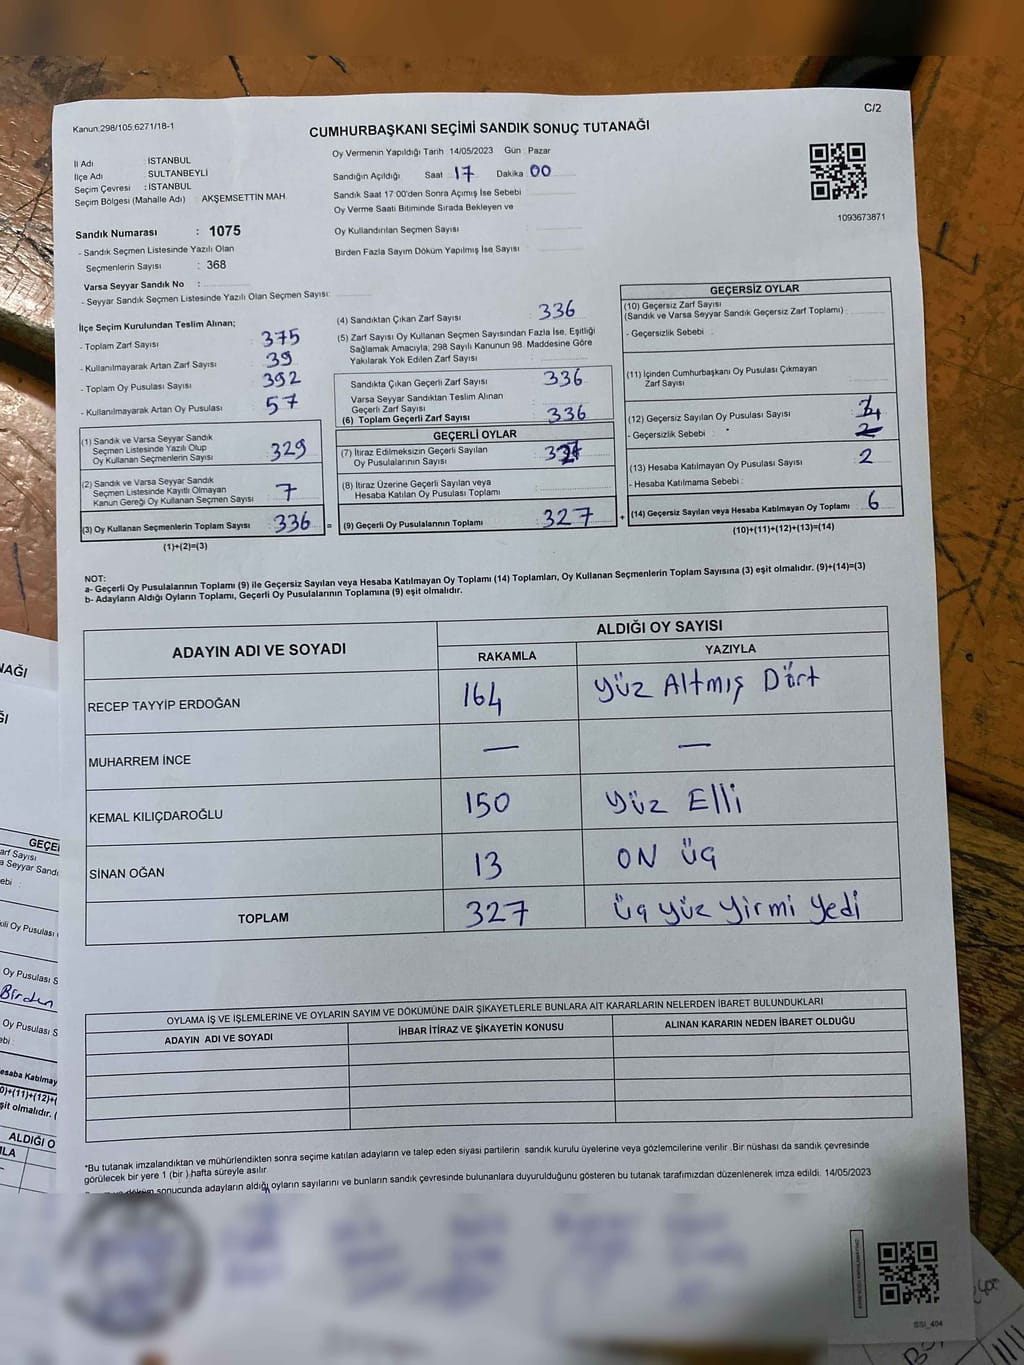 C/2
Kanun:298/105;6271/18-1
CUMHURBAŞKANI SEÇİMİ SANDIK SONUÇ TUTANAĞI
İl Adı : İSTANBUL
İlçe Adı : SULTANBEYLİ
Seçim Çevresi : İSTANBUL
Seçim Bölgesi (Mahalle Adı) : AKŞEMSETTİN MAH
Oy Vermenin Yapıldığı Tarih : 14/05/2023 Gün : Pazar
Sandığın Açıldığı Saat 17 Dakika 00
Sandık Saat 17:00'den Sonra Açımış İse Sebebi
Oy Verme Saati Bitiminde Sırada Bekleyen ve
Oy Kullandırılan Seçmen Sayısı
Birden Fazla Sayım Döküm Yapılmış İse Sayısı
1093673871
Sandık Numarası : 1075
- Sandık Seçmen Listesinde Yazılı Olan
Seçmenlerin Sayısı : 368
Varsa Seyyar Sandık No :
- Seyyar Sandık Seçmen Listesinde Yazılı Olan Seçmen Sayısı:
İlçe Seçim Kurulundan Teslim Alınan;
- Toplam Zarf Sayısı : 375
- Kullanılmayarak Artan Zarf Sayısı : 39
- Toplam Oy Pusulası Sayısı : 392
- Kullanılmayarak Artan Oy Pusulası : 57
(1) Sandık ve Varsa Seyyar Sandık
Seçmen Listesinde Yazılı Olup
Oy Kullanan Seçmenlerin Sayısı : 329
(2) Sandık ve Varsa Seyyar Sandık
Seçmen Listesinde Kayıtlı Olmayan
Kanun Gereği Oy Kullanan Seçmen Sayısı : 7
(3) Oy Kullanan Seçmenlerin Toplam Sayısı : 336 =
(1)+(2)=(3)
(4) Sandıktan Çıkan Zarf Sayısı : 336
(5) Zarf Sayısı Oy Kullanan Seçmen Sayısından Fazla İse, Eşitliği
Sağlamak Amacıyla; 298 Sayılı Kanunun 98. Maddesine Göre
Yakılarak Yok Edilen Zarf Sayısı :
Sandıkta Çıkan Geçerli Zarf Sayısı : 336
Varsa Seyyar Sandıktan Teslim Alınan
Geçerli Zarf Sayısı :
(6) Toplam Geçerli Zarf Sayısı : 336
GEÇERLİ OYLAR
(7) İtiraz Edilmeksizin Geçerli Sayılan
Oy Pusulalarının Sayısı : 327
(8) İtiraz Üzerine Geçerli Sayılan veya
Hesaba Katılan Oy Pusulası Toplamı :
(9) Geçerli Oy Pusulalarının Toplamı : 327 +
GEÇERSİZ OYLAR
(10) Geçersiz Zarf Sayısı
(Sandık ve Varsa Seyyar Sandık Geçersiz Zarf Toplamı) :
- Geçersizlik Sebebi :
(11) İçinden Cumhurbaşkanı Oy Pusulası Çıkmayan
Zarf Sayısı
(12) Geçersiz Sayılan Oy Pusulası Sayısı : 4
- Geçersizlik Sebebi : 2
(13) Hesaba Katılmayan Oy Pusulası Sayısı : 2
- Hesaba Katılmama Sebebi :
(14) Geçersiz Sayılan veya Hesaba Katılmayan Oy Toplamı : 6
(10)+(11)+(12)+(13)=(14)
NOT:
a- Geçerli Oy Pusulalarının Toplamı (9) ile Geçersiz Sayılan veya Hesaba Katılmayan Oy Toplamı (14) Toplamları, Oy Kullanan Seçmenlerin Toplam Sayısına (3) eşit olmalıdır. (9)+(14)=(3)
b- Adayların Aldığı Oyların Toplamı, Geçerli Oy Pusulalarının Toplamına (9) eşit olmalıdır.
ADAYIN ADI VE SOYADI
ALDIĞI OY SAYISI
RAKAMLA YAZIYLA
RECEP TAYYİP ERDOĞAN 164 yüz Altmış Dört
MUHARREM İNCE — —
KEMAL KILIÇDAROĞLU 150 yüz Elli
SİNAN OĞAN 13 ON üç
TOPLAM 327 üç yüz yirmi yedi
OYLAMA İŞ VE İŞLEMLERİNE VE OYLARIN SAYIM VE DÖKÜMÜNE DAİR ŞİKAYETLERLE BUNLARA AİT KARARLARIN NELERDEN İBARET BULUNDUKLARI
ADAYIN ADI VE SOYADI İHBAR İTİRAZ VE ŞİKAYETİN KONUSU ALINAN KARARIN NEDEN İBARET OLDUĞU
*Bu tutanak imzalandıktan ve mühürlendikten sonra seçime katılan adayların ve talep eden siyasi partilerin sandık kurulu üyelerine veya gözlemcilerine verilir .Bir nüshası da sandık çevresinde
görülecek bir yere 1 (bir ) hafta süreyle asılır.
döküm sonucunda adayların aldığı oyların sayılarını ve bunların sandık çevresinde bulunanlara duyurulduğunu gösteren bu tutanak tarafımızdan düzenlenerek imza edildi. 14/05/2023
SSI_404
NAĞI
GEÇE
arf Sayısı
a Seyyar Sandı
ebi :
Oy Pusulası
Oy Pusulası S
Birden
Oy Pusulası S
ebi
esaba Katılmay
0)+(11)+(12)+(
şit olmalıdır. (
ALDIĞI O